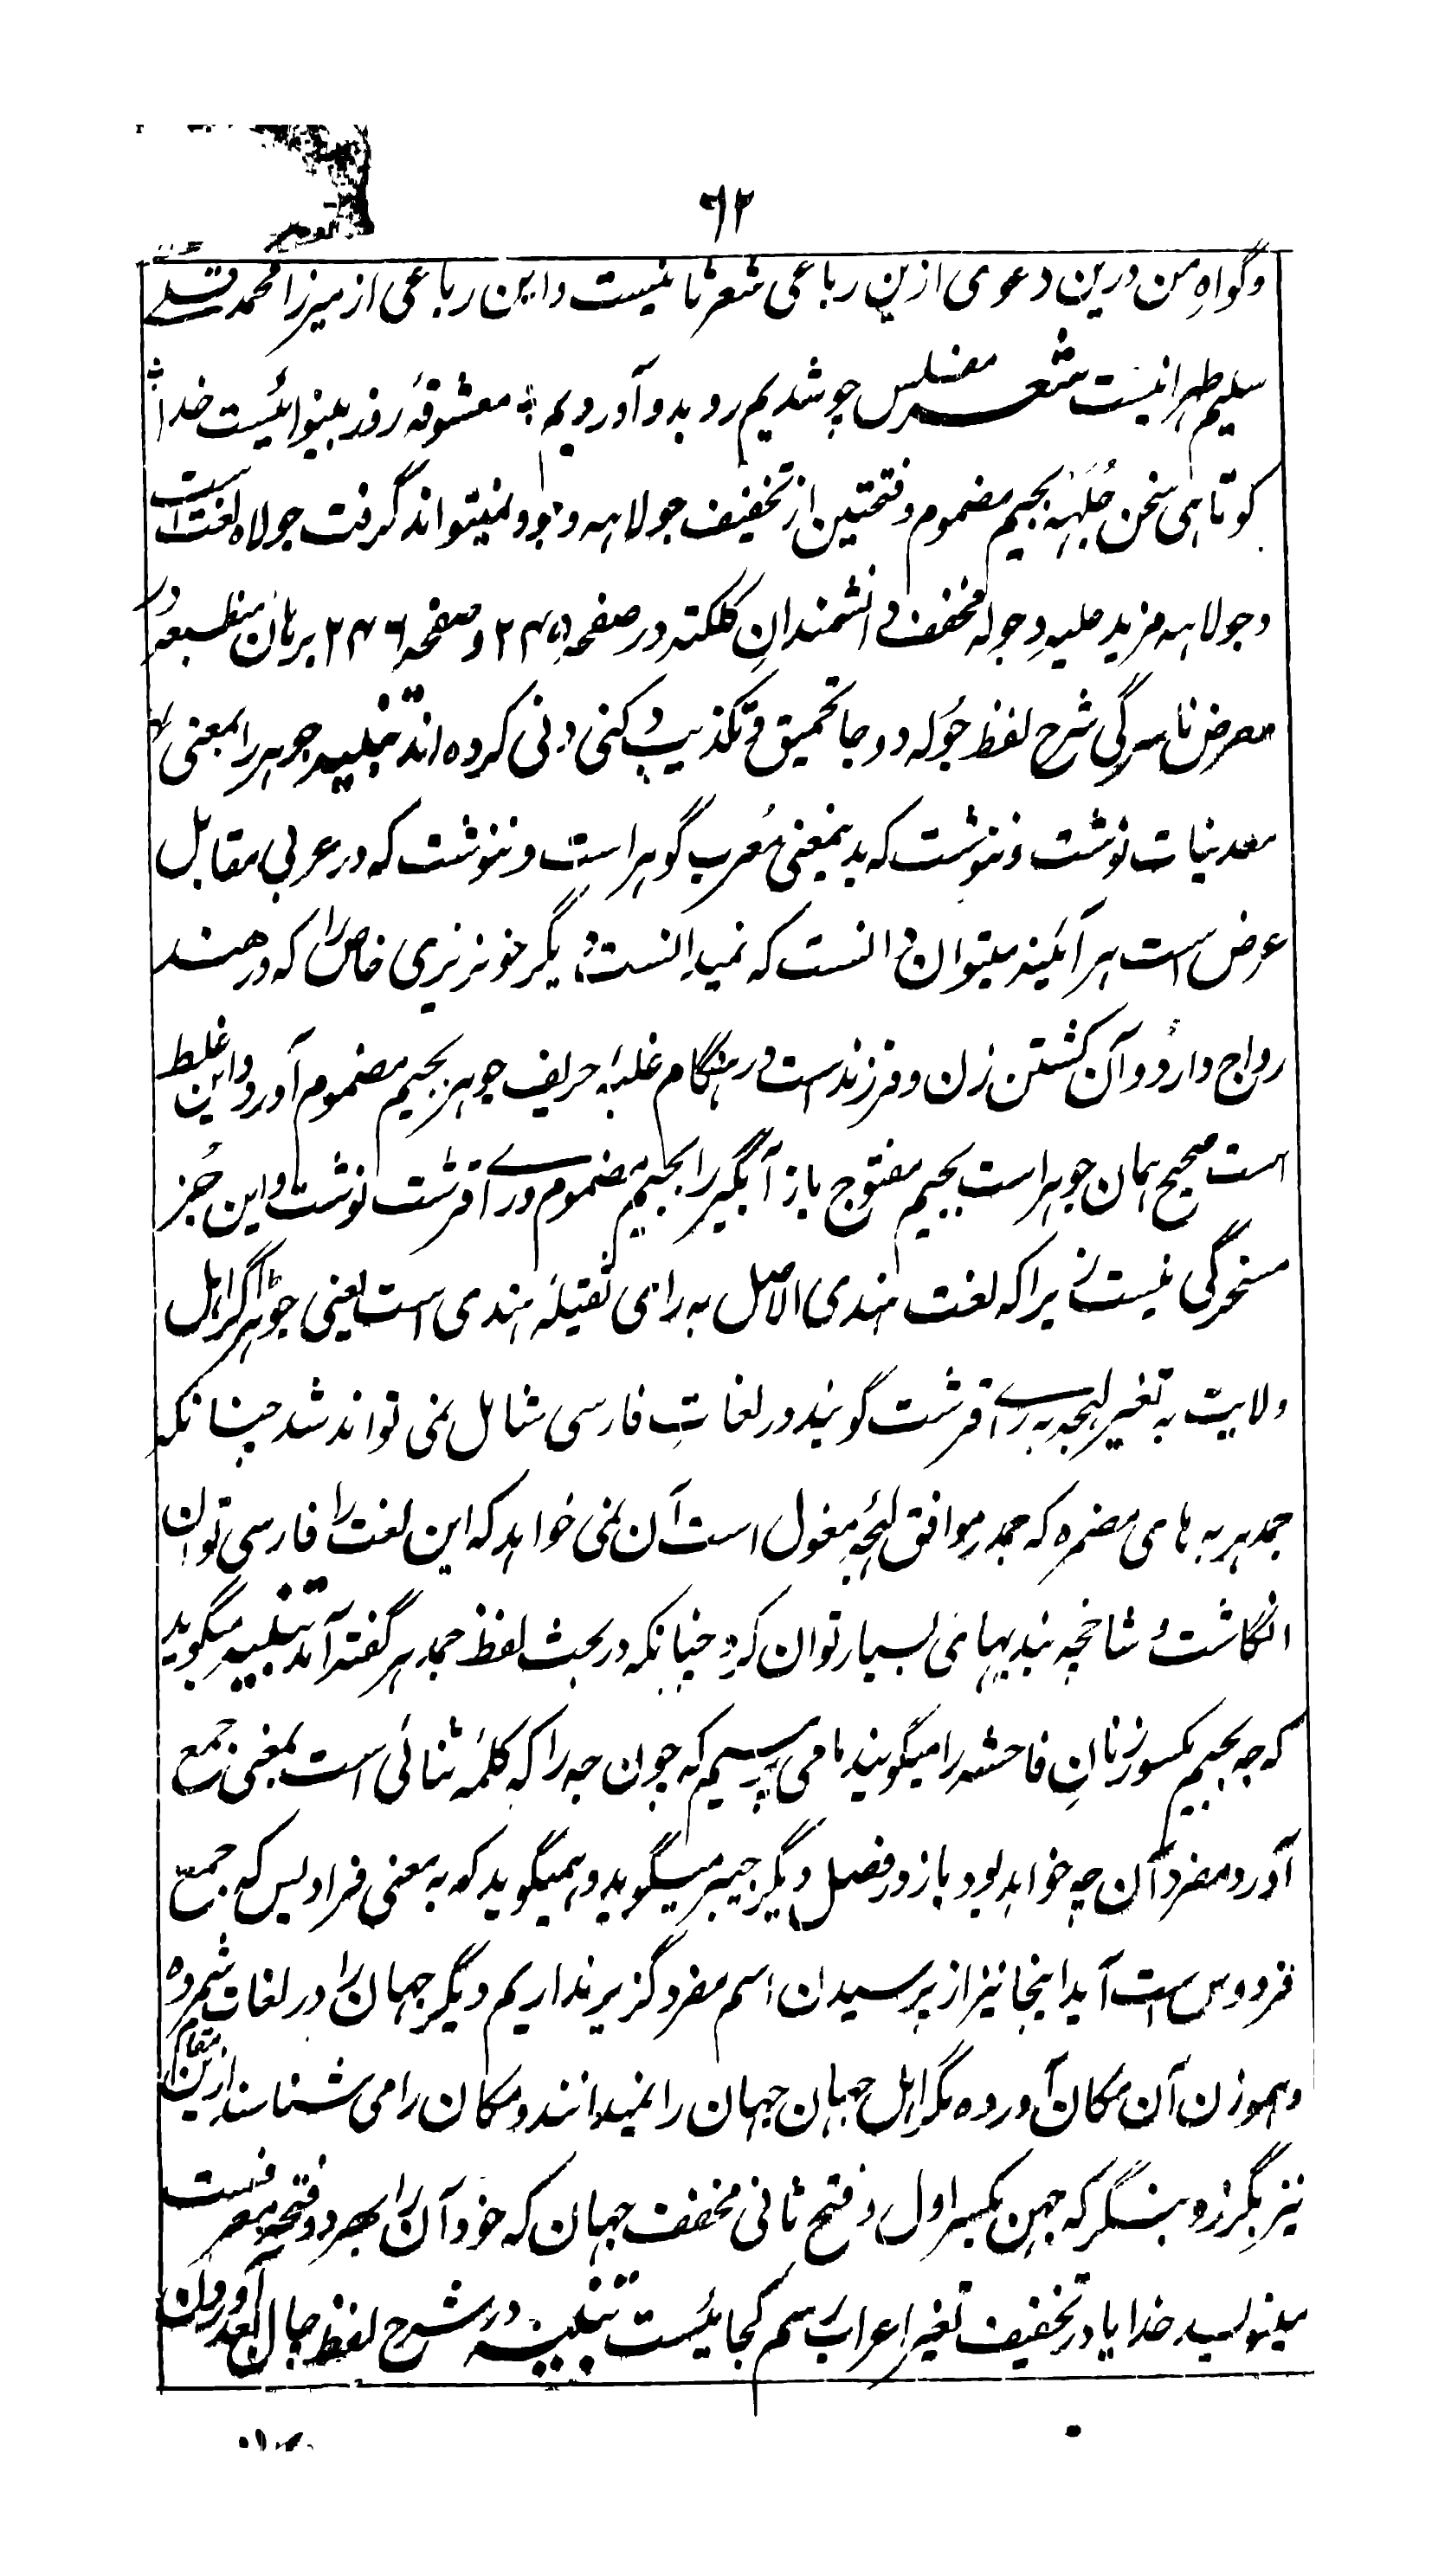 ٦٢
وگواهِ من درین دعوی ازین رباعی شعر ثانیست واین رباعی از میرزا محمد قلے
سلیم طهرانیست شعر مفلس چو شدیم رو بدو آوردیم ؛ معشوقهٔ روز بینوائیست خدا ؛
کوتاهی سخن جُلَهَه بجیم مضموم و فتحتین از تخفیف جولاهه وجود نمیتواند گرفت جولاه لغت است
وجولاهه مزید علیه وجوله مخفف دانشمندانِ کلکته در صفحه ۲۴۵ و صفحه ۲۴۶ برهان منطبعه در
معرض ناسرگی شرح لفظ جُوله دو جا تحمیق و تکذیب دکنی دنی کرده اند تنبیه جوهر را بمعنی
معدنیات نوشت و ننوشت که بدینمعنی مُعرب گوهر است و ننوشت که در عربی مقابل
عرض است هر آئینه میتوان دانست که نمیدانست دیگر خونریزی خاص را که در هند
رواج دارد و آن کشتن زن و فرزندست در هنگام غلبۂ حریف جوهر بجیم مضموم آورد و این غلط
است صحیح همان جوهر است بجیم مفتوح باز آبگیر را بجیم مضموم و راے قرشت نوشت و این جُز
مسخرگی نیست زیرا که لغت هندی الاصل به رای ثقیلهٔ هندی است یعنی جوہڑ اگر اهل
ولایت به تغیر لهجه به راے قرشت گویند در لغاتِ فارسی شامل نمی تواند شد چنانکه
جمدهر به های مضمره که جمدر موافق لهجهٔ مغول است آن نمی خواهد که این لغت را فارسی توان
انگاشت و شاخچه بندیهای بسیار توان کرد چنانکه در بحث لفظ جمدهر گفته آمد تنبیه میگوید
که جه بجیم مکسور زنانِ فاحشه را میگویند ما می پرسیم که چون جه را که کلمهٔ ثنائی است بمعنی جمع
آورد مفرد آن چه خواهد بود باز در فصل دیگر جیبر میگوید و همیگوید که به معنی فرادیس که جمع
فردوس است آید اینجا نیز از پرسیدن اسم مفرد گزیر نداریم دیگر جهان را در لغات شمرده
وهموزن آن مکان آورده مگر اهل جهان جهان را نمیدانند و مکان را می شناسند ازین مقام
نیز بگزر و بنگر که جهن بکسر اول و فتح ثانی مخفف جهان که خود آن را بهر دو فتحه معرفست
مینویسد خدایا در تخفیف تغیر اعراب رسم کجائیست تنبیه در شرح لفظ جال بعد آوردن